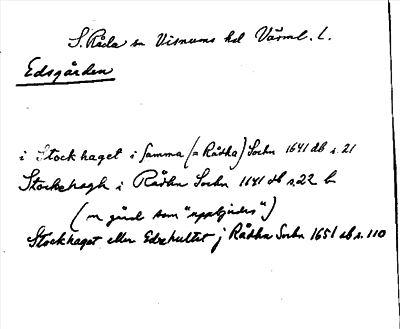 S. Råda sn Visnums hd Värml. l.
Edsgården
i Stockhaget i samma (= Rådha) Sochn 1641 db s. 21
Stockehagh i Rådhn Sochn 1141 db s. 22 b
(en gård som "upptjudes")
Stockhaget eller Edzhultet j Rådhn Sochn 1651 db s. 110